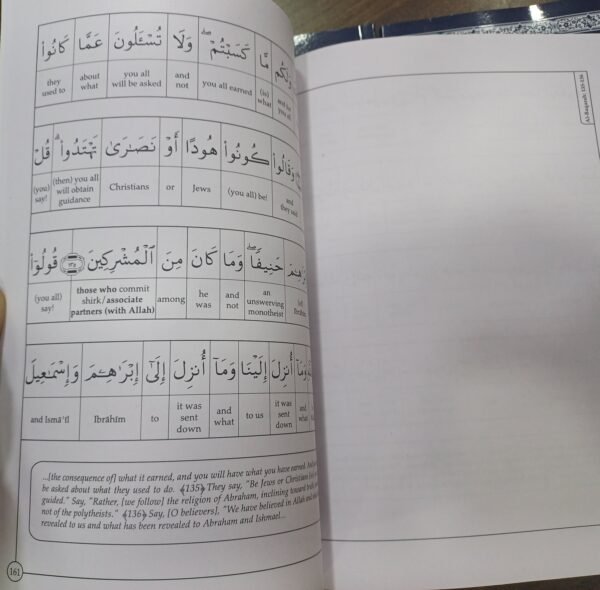 وَلَكُم مَّا كَسَبْتُمْ ۖ وَلَا تُسْـَٔلُونَ عَمَّا كَانُوا۟
and for you all
(is) what
you all earned
and not
you all will be asked
about what
they used to
وَقَالُوا۟ كُونُوا۟ هُودًا أَوْ نَصَـٰرَىٰ تَهْتَدُوا۟ ۗ قُلْ
and they said
(you all) be!
Jews
or
Christians
(then) you all will obtain guidance
(you) say!
حَنِيفًا ۖ وَمَا كَانَ مِنَ ٱلْمُشْرِكِينَ قُولُوٓا۟
Ibrāhīm
an unswerving monotheist
and not
he was
among
those who commit shirk/associate partners (with Allah)
(you all) say!
وَمَآ أُنزِلَ إِلَيْنَا وَمَآ أُنزِلَ إِلَىٰٓ إِبْرَٰهِـۧمَ وَإِسْمَـٰعِيلَ
and what
it was sent down
to us
and what
it was sent down
to
Ibrāhīm
and Ismā'īl
...[the consequence of] what it earned, and you will have what you have earned. And
be asked about what they used to do. ﴾135﴿ They say, "Be Jews or Christians
guided." Say, "Rather, [we follow] the religion of Abraham, inclining toward truth,
not of the polytheists." ﴾136﴿ Say, [O believers], "We have believed in Allah and
revealed to us and what has been revealed to Abraham and Ishmael...
161
Al-Baqarah: 135-136